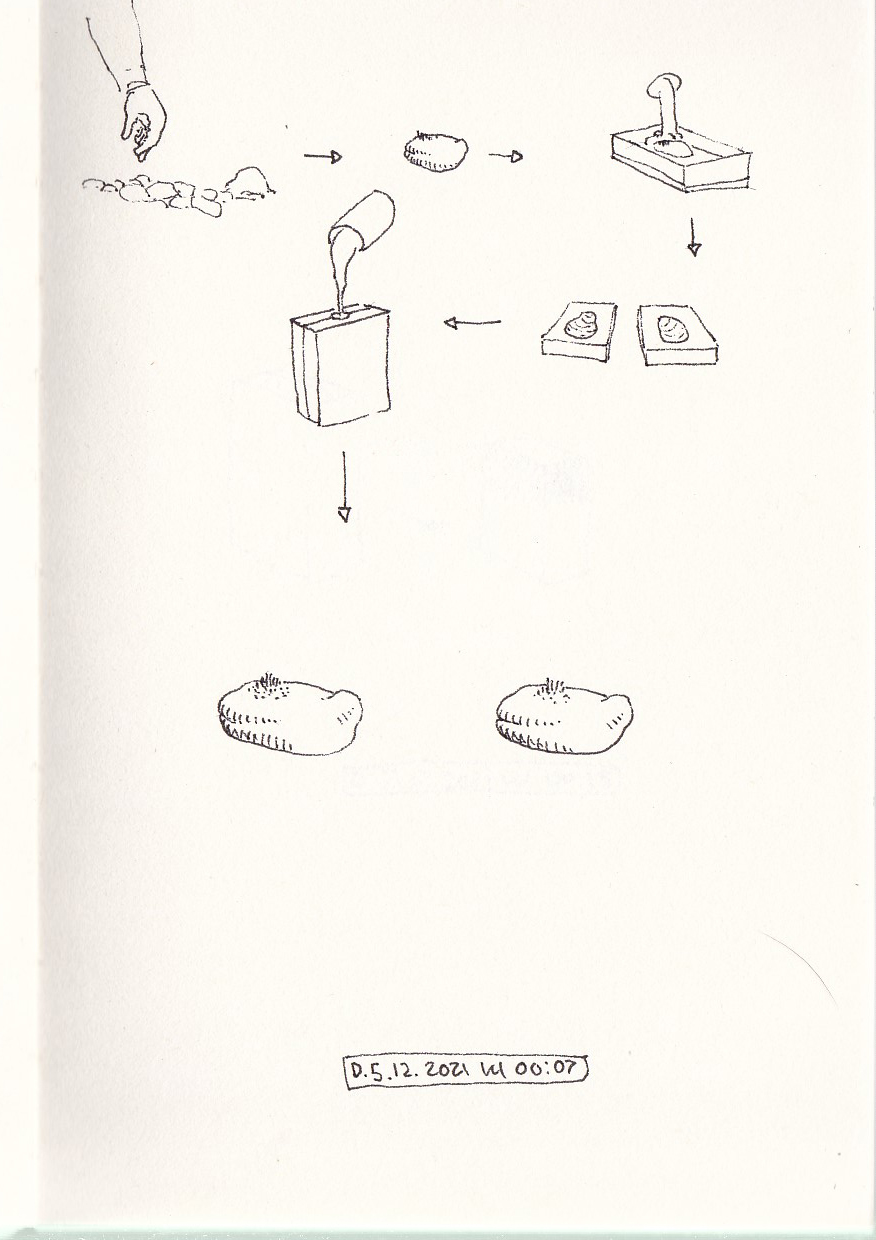 D. 5.12. 2021 kl 00:07